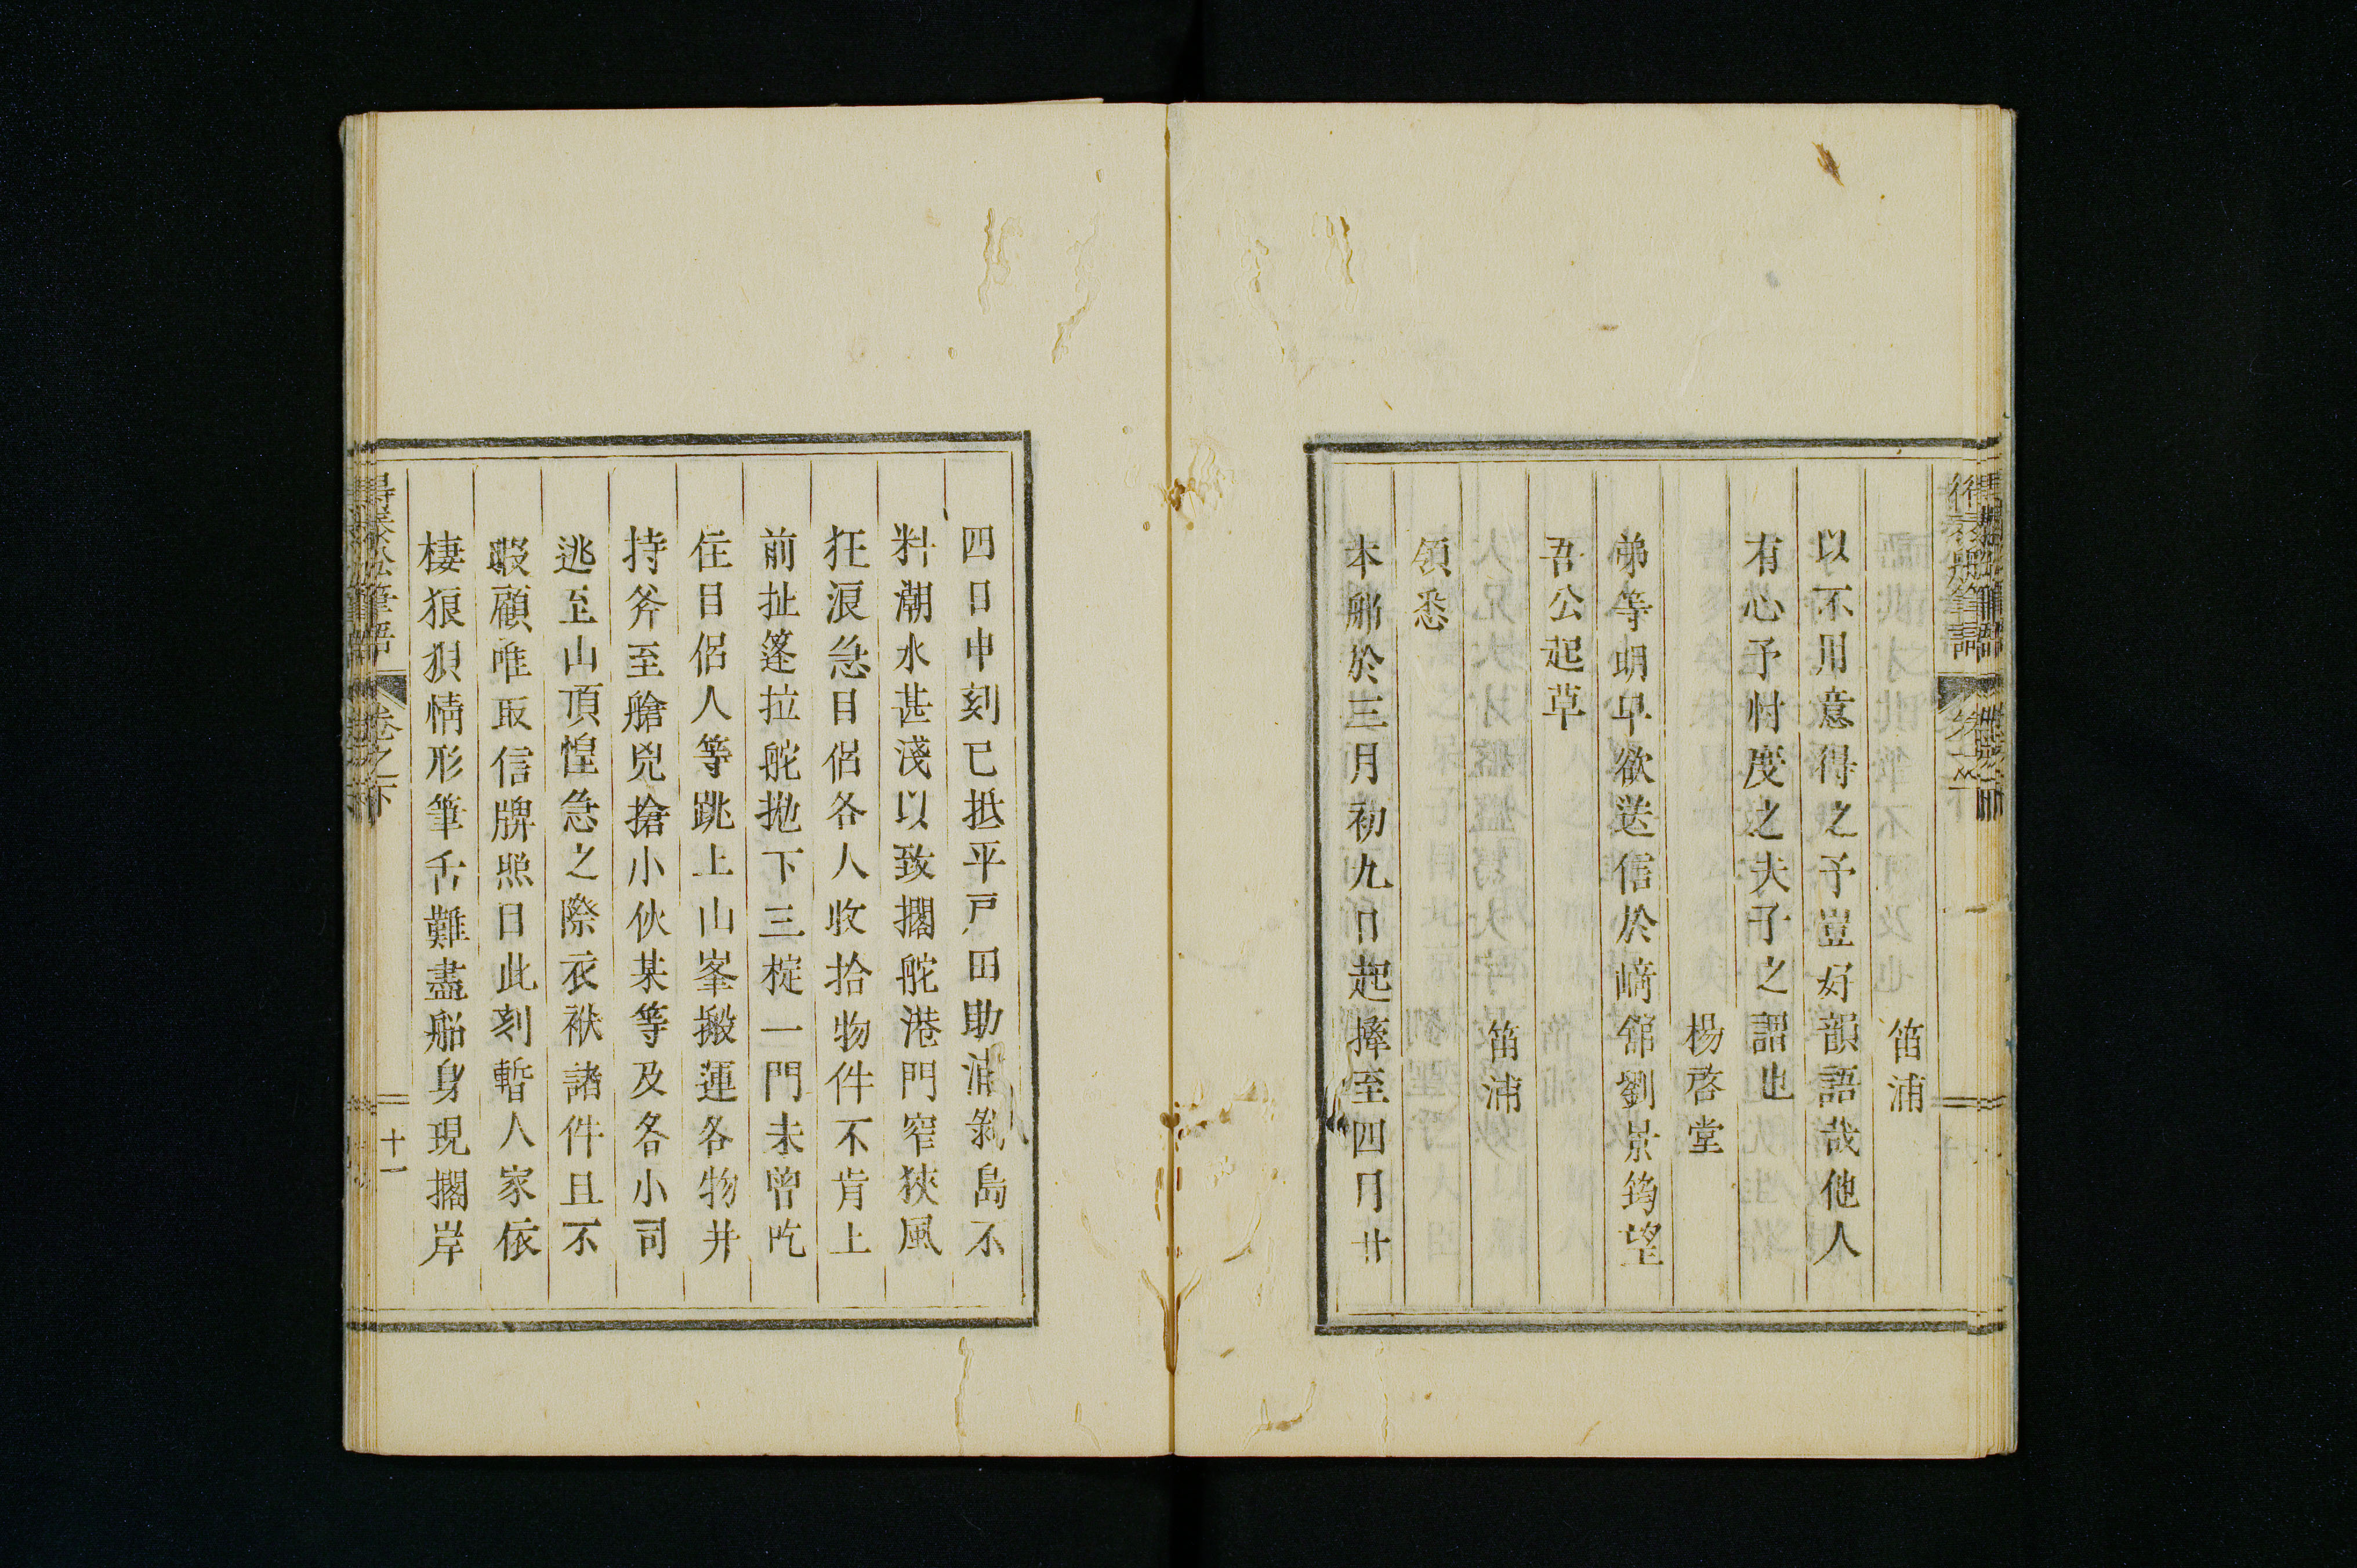 笛浦
以不用意得之予豈好韻語哉他人
有心予忖度之夫子之謂也
楊啓堂
弟等明早欲送信於崎館劉景筠望
吾公起草
笛浦
領悉
本船於三月初九日起擇至四月廿
四日申刻已抵平戸田助浦剝島不
料潮水甚淺以致擱舵港門窄狹風
狂浪急目侶各人收拾物件不肯上
前扯篷拉舵抛下三椗一門未曾吃
住目侶人等跳上山峯搬運各物并
持斧至艙兇搶小伙某等及各小司
逃至山頂惶急之際衣袱諸件且不
暇顧唯取信牌照日此刻暫人家依
棲狼狽情形筆舌難盡船身現擱岸
得泰船筆語 卷之下 十一